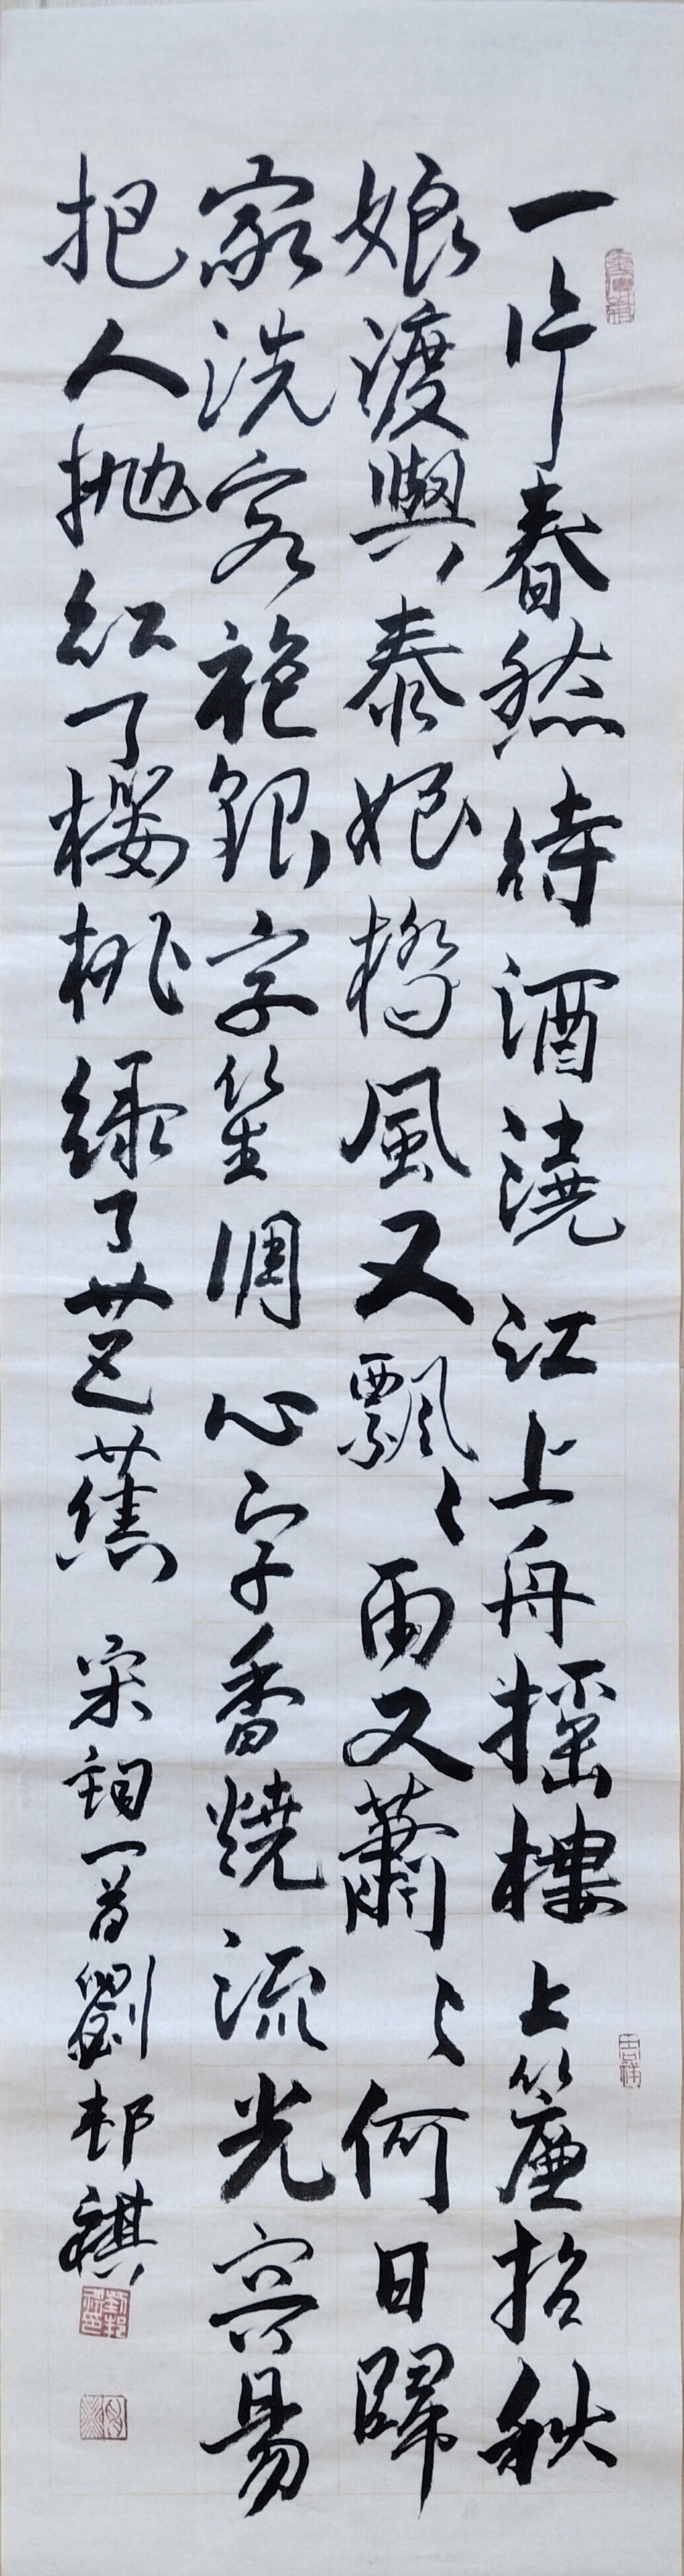 一片春愁待酒澆江上舟搖樓上簾招秋
娘渡與泰娘橋風又飄〻雨又蕭〻何日歸
家洗客袍銀字笙調心字香燒流光容易
把人拋紅了櫻桃綠了芭蕉 宋詞一首劉邨祺